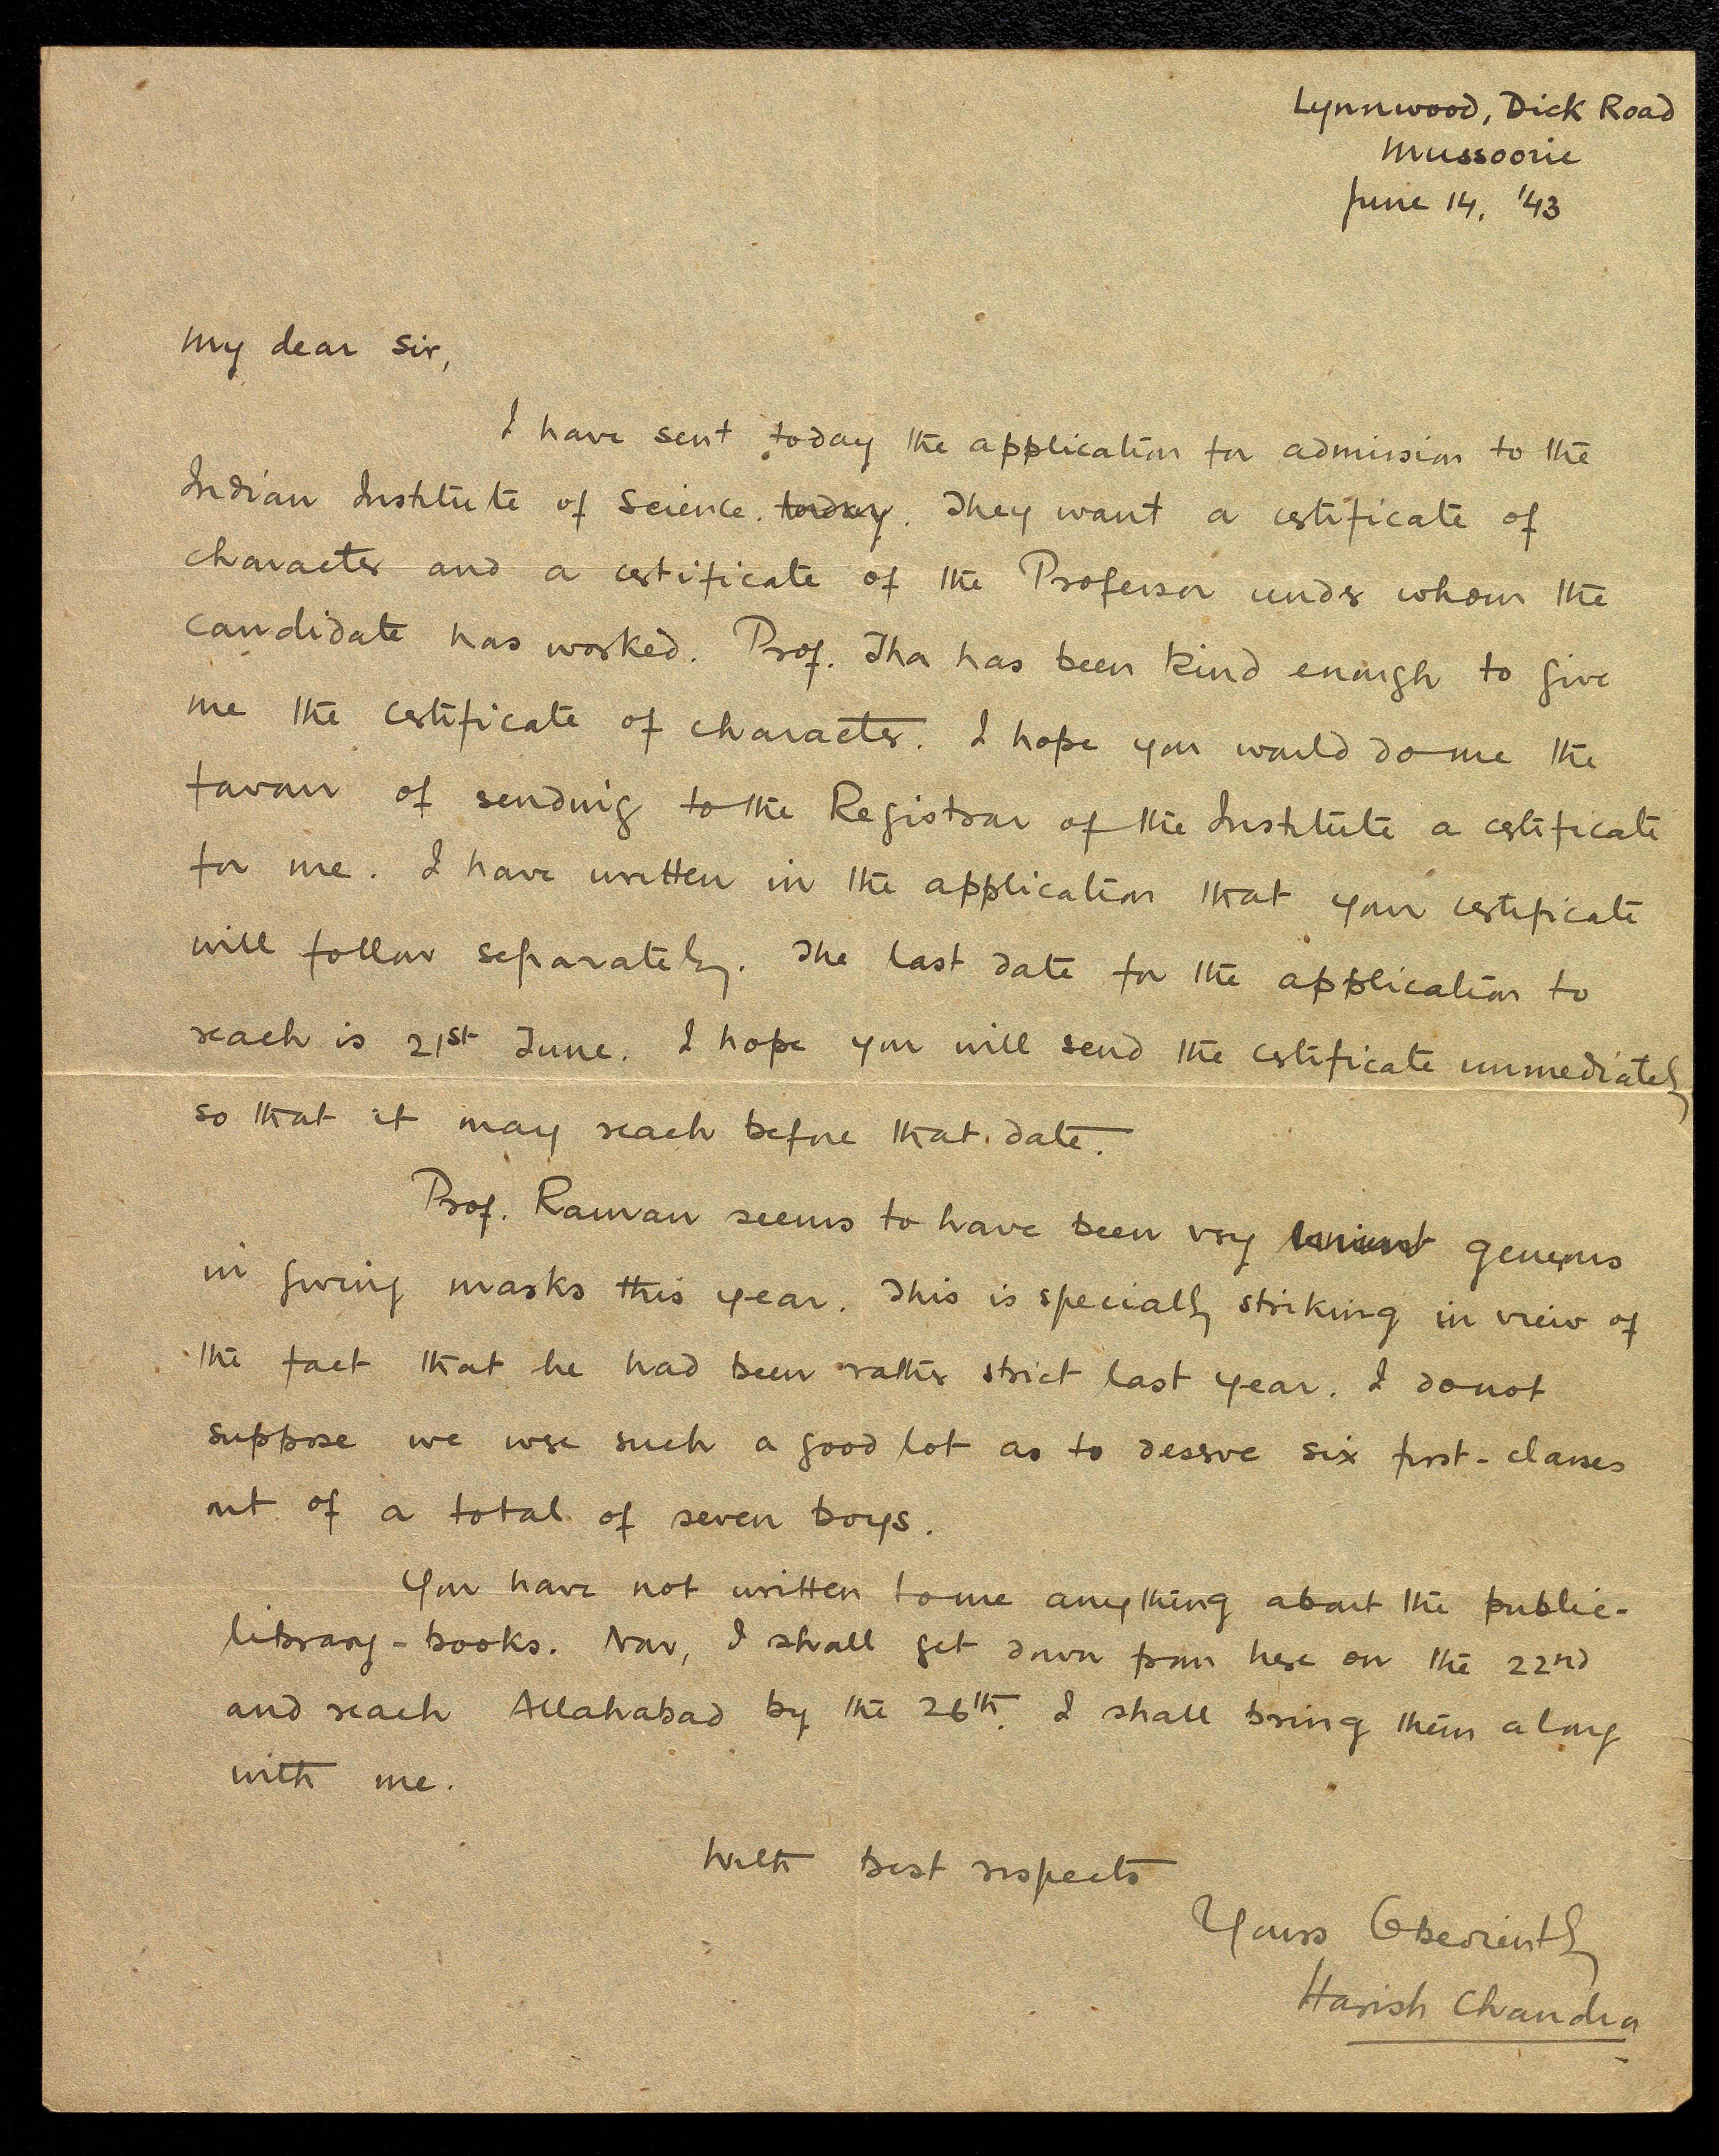 Lynnwood, Dick Road
Mussoorie
June 14, '43
My dear Sir,
I have sent today the application for admission to the
Indian Institute of Science. today. They want a certificate of
character and a certificate of the Professor under whom the
candidate has worked. Prof. Jha has been kind enough to give
me the certificate of character. I hope you would do me the
favour of sending to the Registrar of the Institute a certificate
for me. I have written in the application that your certificate
will follow separately. The last date for the application to
reach is 21st June. I hope you will send the certificate immediately
so that it may reach before that date.
Prof. Raman seems to have been very lenient generous
in giving marks this year. This is specially striking in view of
the fact that he had been rather strict last year. I do not
suppose we were such a good lot as to deserve six first-classes
out of a total of seven boys.
You have not written to me anything about the public-
library-books. Now, I shall get down from here on the 22nd
and reach Allahabad by the 26th. I shall bring them along
with me.
With best respects
Yours Obediently
Harish Chandra